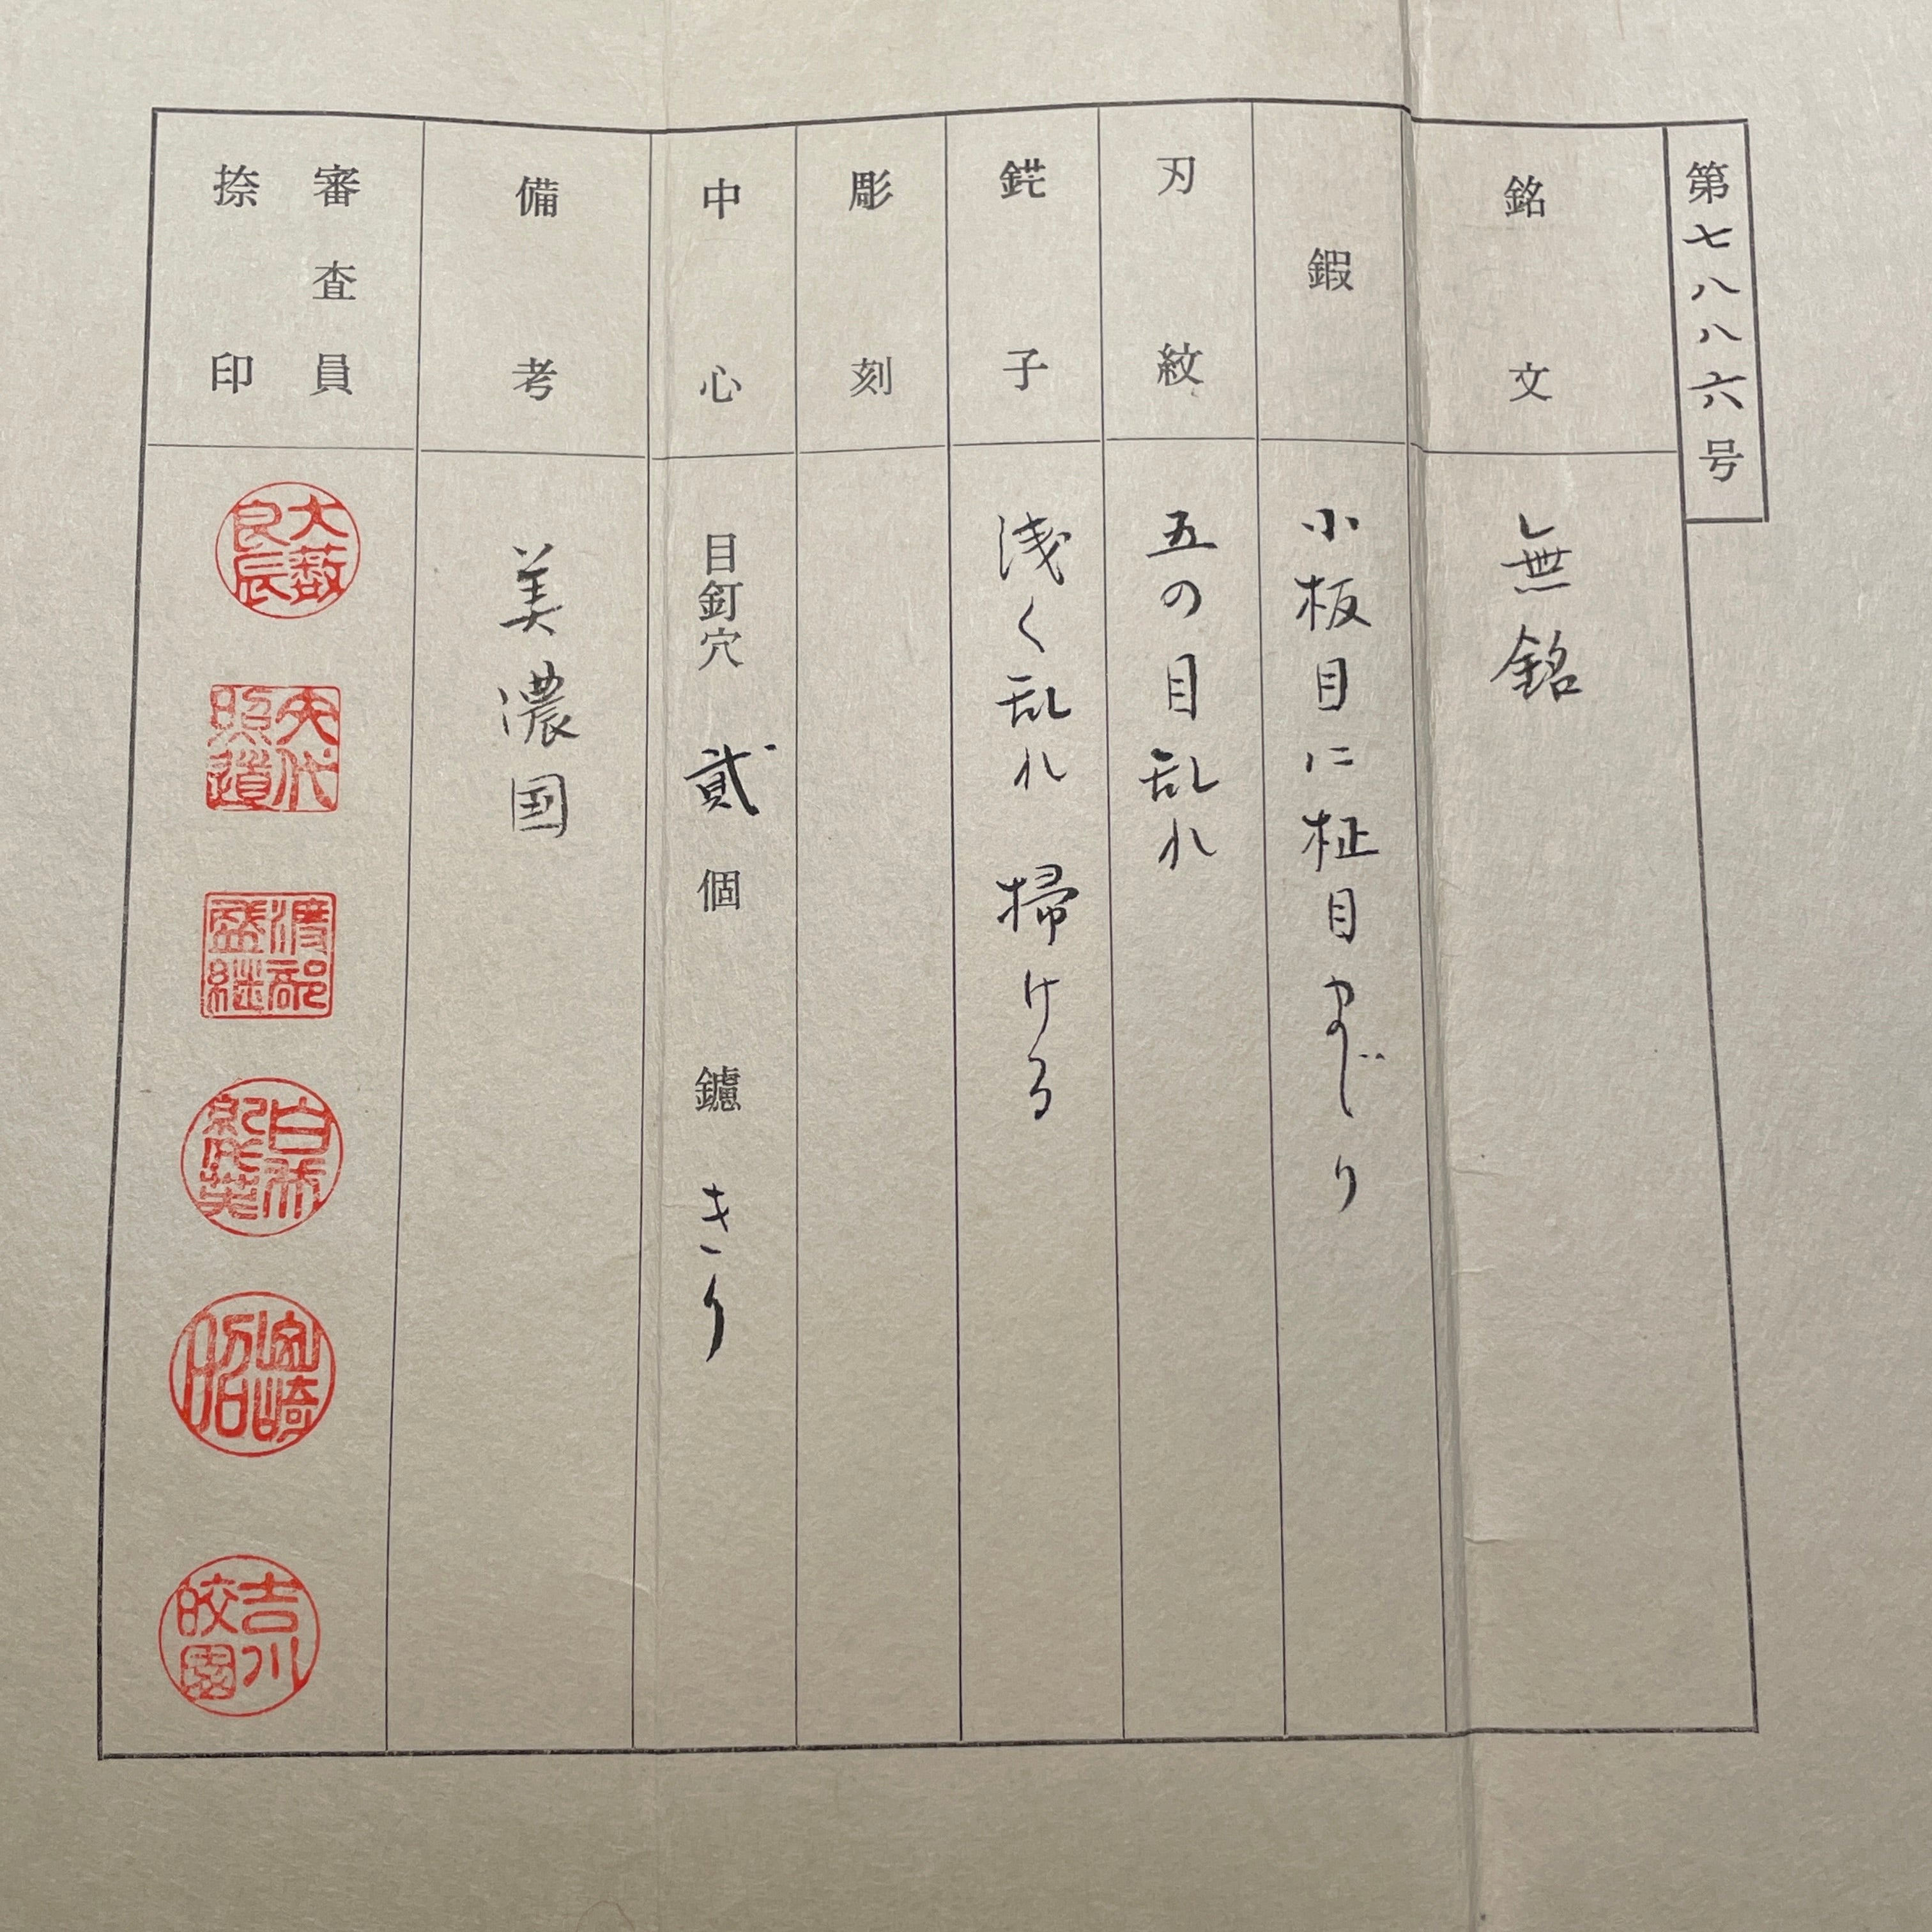 第七八八六号
銘文
無銘
鍜
小板目に柾目まじり
刃紋
五の目乱れ
鋩子
浅く乱れ 掃ける
彫刻
中心
目釘穴 貳 個 鑢 きり
備考
美濃国
審査員
捺印
大薮
良辰
矢代
照道
渡部
盛継
吉川
皎園